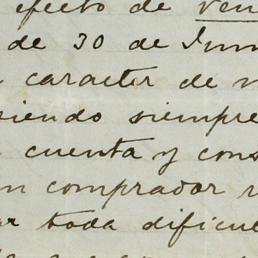 efecto de ven
de 30 de Jun
caracter de
iendo siempre
cuenta y cons
n comprador
ar toda dificu